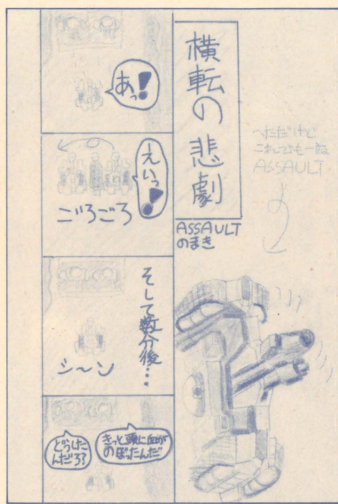 横転の悲劇
ASSAULT
のまき
へただけど
これでも一応
ASSAULT
あっ!
えいっ!
ごろごろ
そして数分後…
シ〜ン
きっと頭に血が
のぼったんだ
どうした
んだろ?